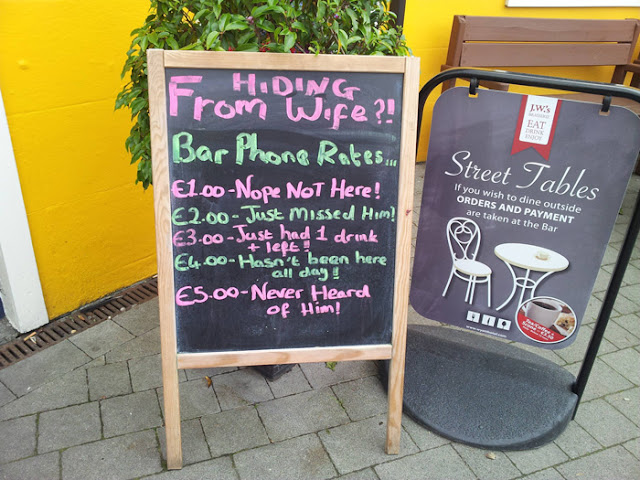 HIDING
From Wife?!
Bar Phone Rates...
€1.00-Nope Not Here!
€2.00-Just Missed Him!
€3.00-Just had 1 drink
+ left!
€4.00-Hasn't been here
all day!
€5.00-Never Heard
of Him!
J.W.'s
EAT
DRINK
ENJOY
Street Tables
If you wish to dine outside
ORDERS AND PAYMENT
are taken at the Bar